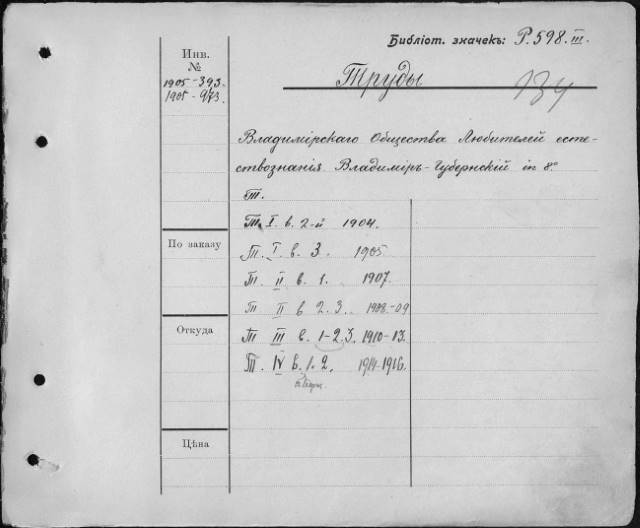 Библіот. значекъ: P. 598. III.
Инв.
№
1905-393.
1905-973.
Труды
134
Владимірскаго Общества Любителей есте-
ствознанія. Владиміръ-Губернскій in 8.°
Т.
Т. I в. 2-й 1904.
Т. I. в. 3. 1905
Т. II в. 1. 1907.
Т II в 2. 3. 1908-09
Т III в. 1-2, 3. 1910-13.
Т. IV в. 1. 2. 1914-1916.
По заказу
Откуда
Цѣна